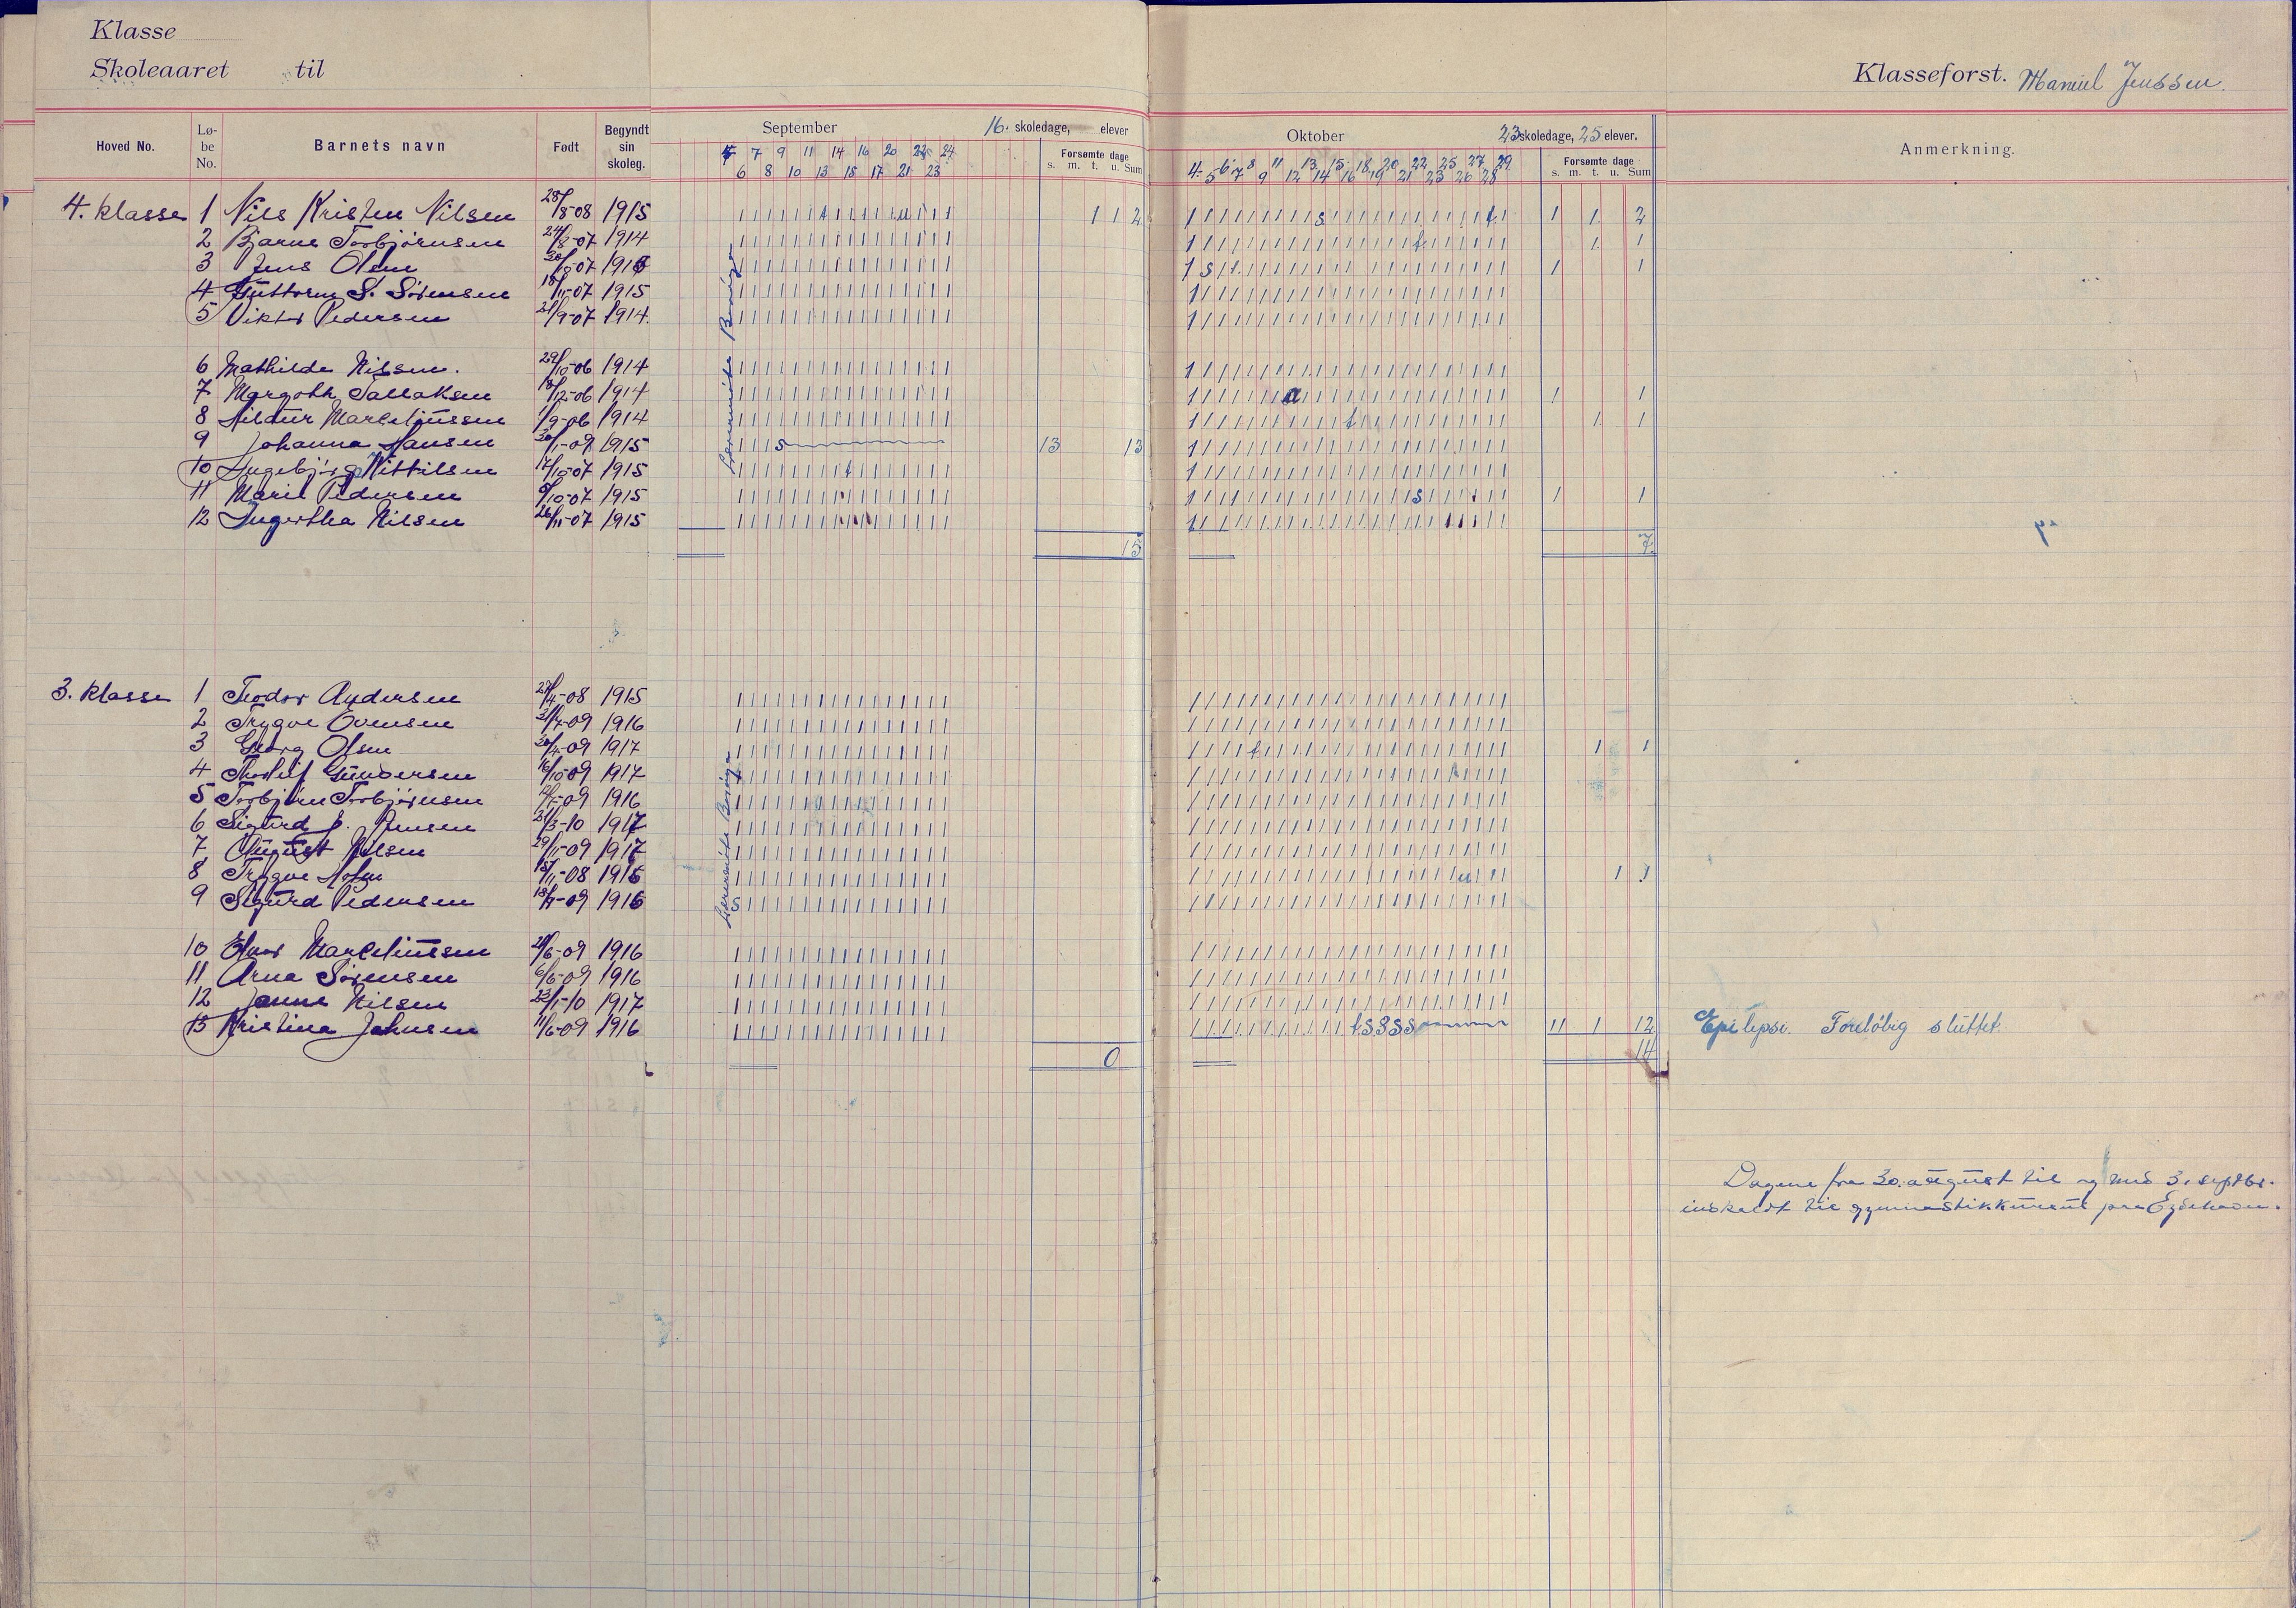 Klasse
Skoleaaret til
Klasseforst. Manuel Jenssen.
Hoved No. Lø-be No. Barnets navn Født Begyndt sin skoleg.
September 16. skoledage, elever
Forsømte dage
s. m. t. u. Sum
7 9 11 14 16 20 22 24
6 8 10 13 15 17 21 23
Oktober 23 skoledage, 25 elever.
Forsømte dage
s. m. t. u. Sum
4. 5 6 7 8 9 11 12 13 14 15 16 18 19 20 21 22 23 25 26 27 28 29
Anmerkning.
4. klasse 1 Nils Kristen Nilsen 28/8-08 1915 1 1 2 1 1 2
2 Bjarne Torbjørnsen 24/8-07 1914 1 1
3 Jens Olsen 1 1
4 Guttorm S. Sørensen 18/11-07 1915
5 Viktor Pedersen 21/9-07 1914.
6 Mathilde Nilsen. 29/10-06 1914
7 Margoth Tallaksen 18/12-06 1914 1 1
8 Hildur Marceliussen 1/9-06 1914 1 1
9 Johanna Hansen 1915 s 13 13
10 Ingebjørg Kittilsen 17/10-07 1915
11 Marie Pedersen 9/10-07 1915 s 1 1
12 Ingertha Nilsen 26/11-07 1915
15 7.
3. klasse 1 Teodor Andersen 27/4-08 1915
2 Trygve Evensen 1916
3 Georg Olsen 1917 1 1
4 Thorleif Gundersen 16/10-09 1917
5 Torbjørn Torbjørnsen 1916
6 Sigurd J. Jensen 1917
7 August Nilsen 29/11-09 1917
8 Trygve Holm 1916 u 1 1
9 Sigurd Pedersen 1916 s
10 Elnor Marceliussen 1916
11 Arna Sørensen 6/6-09 1916
12 Janne Nilsen 23/1-10 1917
13 Kristine Johnsen 11/6-09 1916 t.S.S.S.S 11 1 12 Epilepsi. Foreløbig sluttet.
0 14
Dagene fra 30. august til og med 3. septbr.
inskaldt til gymnastikkursus paa Eydehavn.